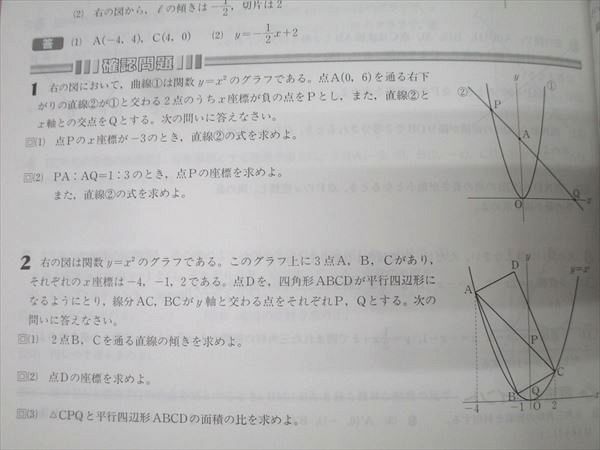 (2) 右の図から，ℓの傾きは-1/2，切片は2
答 (1) A(-4, 4), C(4, 0) (2) y=-1/2x+2
確認問題
1 右の図において，曲線①は関数 y=x²のグラフである。点A(0, 6)を通る右下
がりの直線②が①と交わる2点のうちx座標が負の点をPとし，また，直線②と
x軸との交点をQとする。次の問いに答えなさい。
(1) 点Pのx座標が-3のとき，直線②の式を求めよ。
(2) PA：AQ=1：3のとき，点Pの座標を求めよ。
また，直線②の式を求めよ。
② y ①
P
A
O Q x
2 右の図は関数 y=x²のグラフである。このグラフ上に3点A，B，Cがあり，
それぞれのx座標は-4，-1，2である。点Dを，四角形ABCDが平行四辺形に
なるようにとり，線分AC，BCがy軸と交わる点をそれぞれP，Qとする。次の
問いに答えなさい。
(1) 2点B，Cを通る直線の傾きを求めよ。
(2) 点Dの座標を求めよ。
(3) △CPQと平行四辺形ABCDの面積の比を求めよ。
D y y=x²
A
P
C
B Q
-4 -1 O 2 x